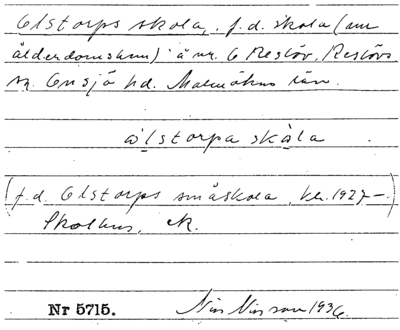 Olstorps skola, f.d. skola (nu
ålderdomshem) å nr. 6 Reslöv, Reslövs
sn. Onsjö hd. Malmöhus län.
ὼlstorpa skàla
(f.d. Olstorps småskola, kl. 1927–.
Skolhus, ek.
Nr 5715.
Nils Nilsson 1936.